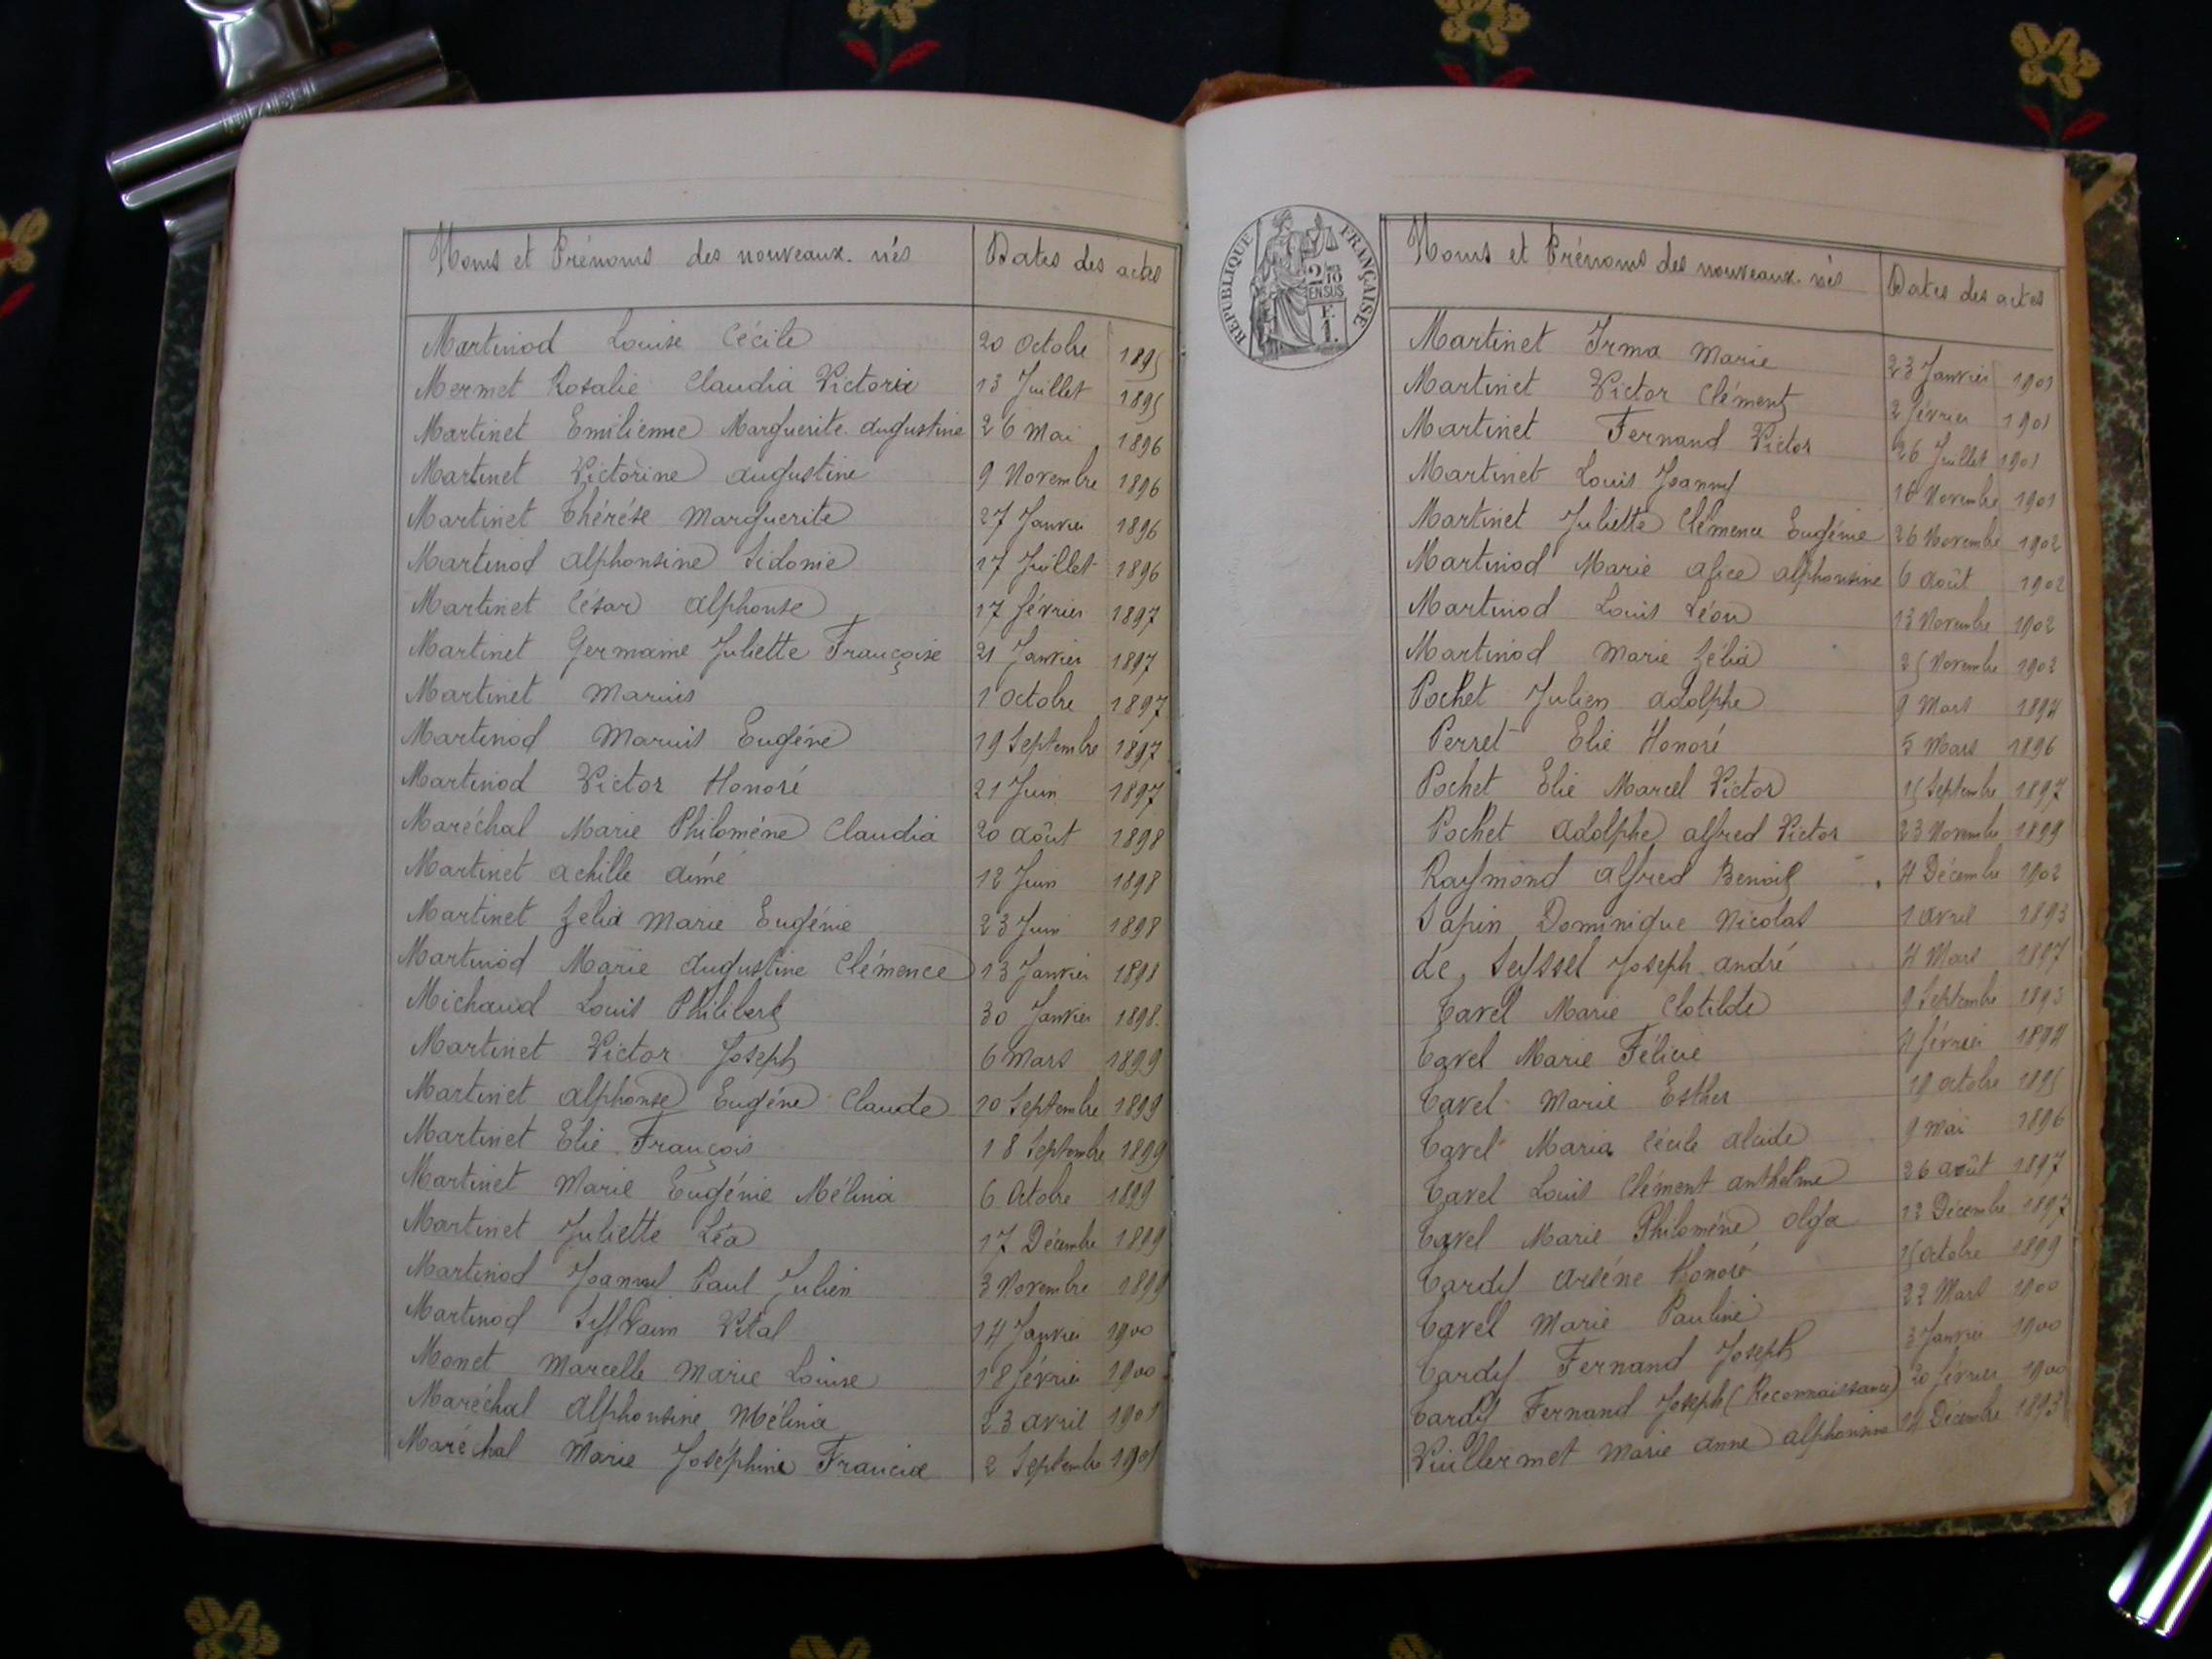 Noms et Prénoms des nouveaux-nés Dates des actes
Martinod Louise Cécile 20 Octobre 1895
Mermet Rosalie Claudia Victoria 13 Juillet 1895
Martinet Emilienne Marguerite Augustine 26 Mai 1896
Martinet Victorine Augustine 9 Novembre 1896
Martinet Thérése Marguerite 27 Janvier 1896
Martinod Alphonsine Sidonie 17 Juillet 1896
Martinet César Alphonse 17 février 1897
Martinet Germaine Juliette Françoise 21 Janvier 1897
Martinet Marius 1 Octobre 1897
Martinod Marius Eugéne 19 Septembre 1897
Martinod Victor Honoré 21 Juin 1897
Maréchal Marie Philoméne Claudia 20 Août 1898
Martinet Achille Aimé 12 Juin 1898
Martinet Zelia Marie Eugénie 23 Juin 1898
Martinod Marie Augustine Clémence 13 Janvier 1898
Michaud Louis Philibert 30 Janvier 1898
Martinet Victor Joseph 6 Mars 1899
Martinet Alphonse Eugéne Claude 10 Septembre 1899
Martinet Elie François 18 Septembre 1899
Martinet Marie Eugénie Mélina 6 Octobre 1899
Martinet Juliette Léa 17 Décembre 1899
Martinod Joanny Paul Julien 3 Novembre 1899
Martinod Sylvain Vital 14 Janvier 1900
Monet Marcelle Marie Louise 18 février 1900
Maréchal Alphonsine Mélina 23 avril 1901
Maréchal Marie Joséphine Francia 2 Septembre 1901
REPUBLIQUE FRANÇAISE
2/10
EN SUS
F.
1.
Noms et Prénoms des nouveaux-nés Dates des actes
Martinet Irma Marie 23 Janvier 1901
Martinet Victor Clément 2 février 1901
Martinet Fernand Victor 26 Juillet 1901
Martinet Louis Joanny 18 Novembre 1901
Martinet Juliette Clémence Eugénie 26 Novembre 1902
Martinod Marie Alice Alphonsine 6 Août 1902
Martinod Louis Léon 13 Novembre 1902
Martinod Marie Zélia 25 Novembre 1902
Pochet Julien Adolphe 9 Mars 1894
Perret Elie Honoré 5 Mars 1896
Pochet Elie Marcel Victor 15 Septembre 1897
Pochet Adolphe Alfred Victor 23 Novembre 1899
Raymond Alfred Benoit 4 Décembre 1902
Sapin Dominique Nicolas 1 Avril 1893
de Seyssel Joseph André 4 Mars 1897
Tavel Marie Clotilde 9 Septembre 1893
Tavel Marie Félicie 4 février 1894
Tavel Marie Esther 19 octobre 1895
Tavel Maria Cécile Alcide 9 Mai 1896
Tavel Louis Clément Anthelme 26 août 1897
Tavel Marie Philoméne Olga 12 Décembre 1897
Tardy Arséne Honoré 15 octobre 1899
Tavel Marie Pauline 22 Mars 1900
Tardy Fernand Joseph 3 Janvier 1900
Tardy Fernand Joseph (Reconnaissance) 20 février 1900
Vuillermet Marie Anne Alphonsine 14 Décembre 1893